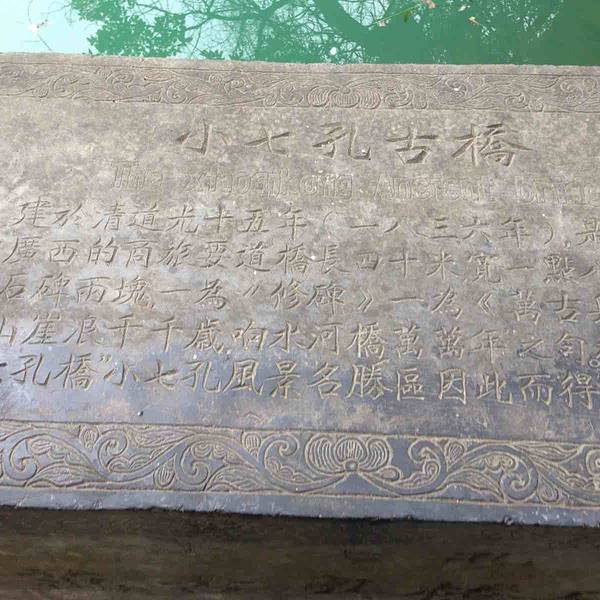 小七孔古橋
The xiaoqikong Ancient Bridge
建於清道光十五年（一八三六年），是
廣西的商旅要道橋長四十米寬一點八
石碑兩塊一為《修碑》一為《萬古興
山崖浪千千歲响水河橋萬萬年"之句
孔橋"小七孔風景名勝區因此而得